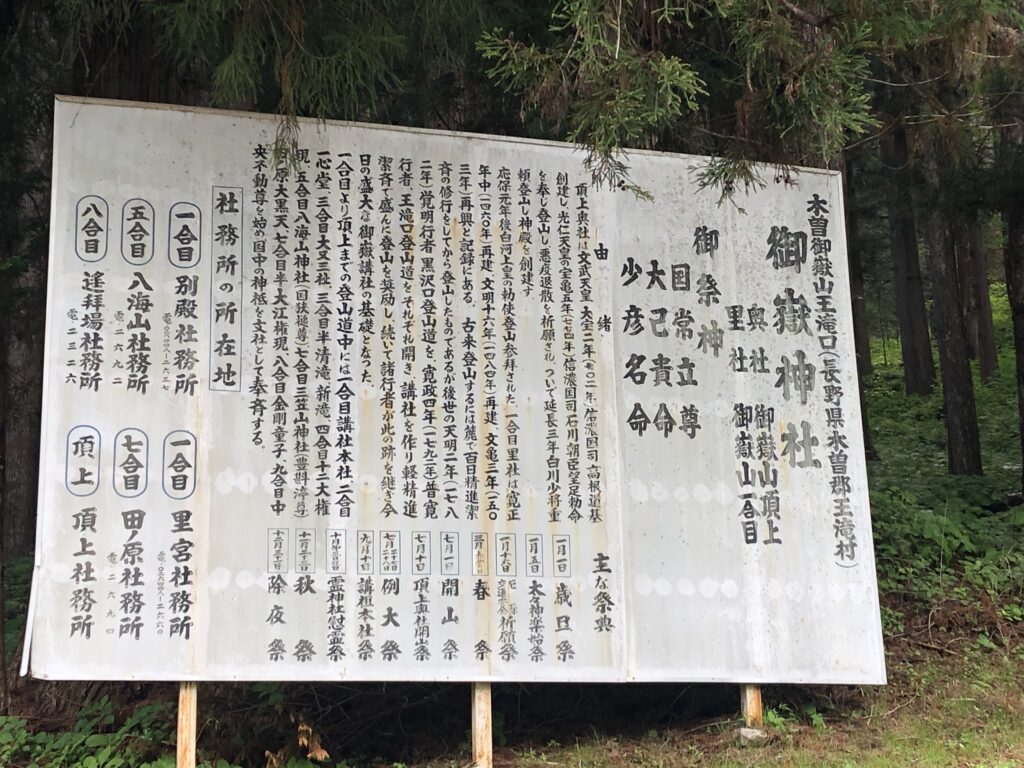 木曽御嶽山王滝口(長野県木曽郡王滝村)
御嶽神社
奥社 御嶽山頂上
里社 御嶽山一合目
御祭神
国常立尊
大己貴命
少彦名命
由緒
頂上奥社は文武天皇 大宝二年(七〇二年)信濃国司 高根道基
創建し、光仁天皇の宝亀五年(七七四年)信濃国司石川朝臣望足勅命
を奉じ登山し悪疫退散を祈願され、ついで延長三年白川少将重
頼登山し神殿を創建す。
応保元年後白河上皇の勅使登山参拝された 一合目里社は寛正
年中(一四六〇年)再建、文明十六年(一四八四年)再建、文亀三年(一五〇
三年)再興と記録にある。古来登山するには麓で百日精進潔
斉の修行をしてから登山したものであるが後世の天明二年(一七八
二年)覚明行者 黒沢口登山道を、寛政四年(一七九二年)普寛
行者、王滝口登山道をそれぞれ開き、講社を作り軽精進
潔斉で盛んに登山を奨励し、続いて諸行者が此の跡を継ぎ今
日の盛大な御嶽講社の基礎となった。
一合目より頂上までの登山道中には一合目講社本社 二合目
一心堂、三合目大又三社、三合目半清滝、新滝、四合目十二大権
現、五合目八海山神社(国狭槌尊)七合目三笠山神社(豊斟渟尊)
原大黒天、七合目半大江権現、八合目金剛童子、九合目中
央不動尊を始め国中の神祗を支社として奉斉する。
主な祭典
一月一日 歳旦祭
一月十五日 太々神楽始祭
一月十六日 祈願祭
三月 春祭
七月一日 開山祭
七月十日 頂上奥社開山祭
七月二十七日 七月二十八日 例大祭
九月十日 講祖本社祭
霊神社慰霊祭
秋祭
十二月三十一日 除夜祭
社務所の所在地
一合目 別殿社務所
一合目 里宮社務所
五合目 八海山社務所
電 二六九二
七合目 田ノ原社務所
電 二六九四
八合目 遙拝場社務所
電 二三二六
頂上 頂上社務所